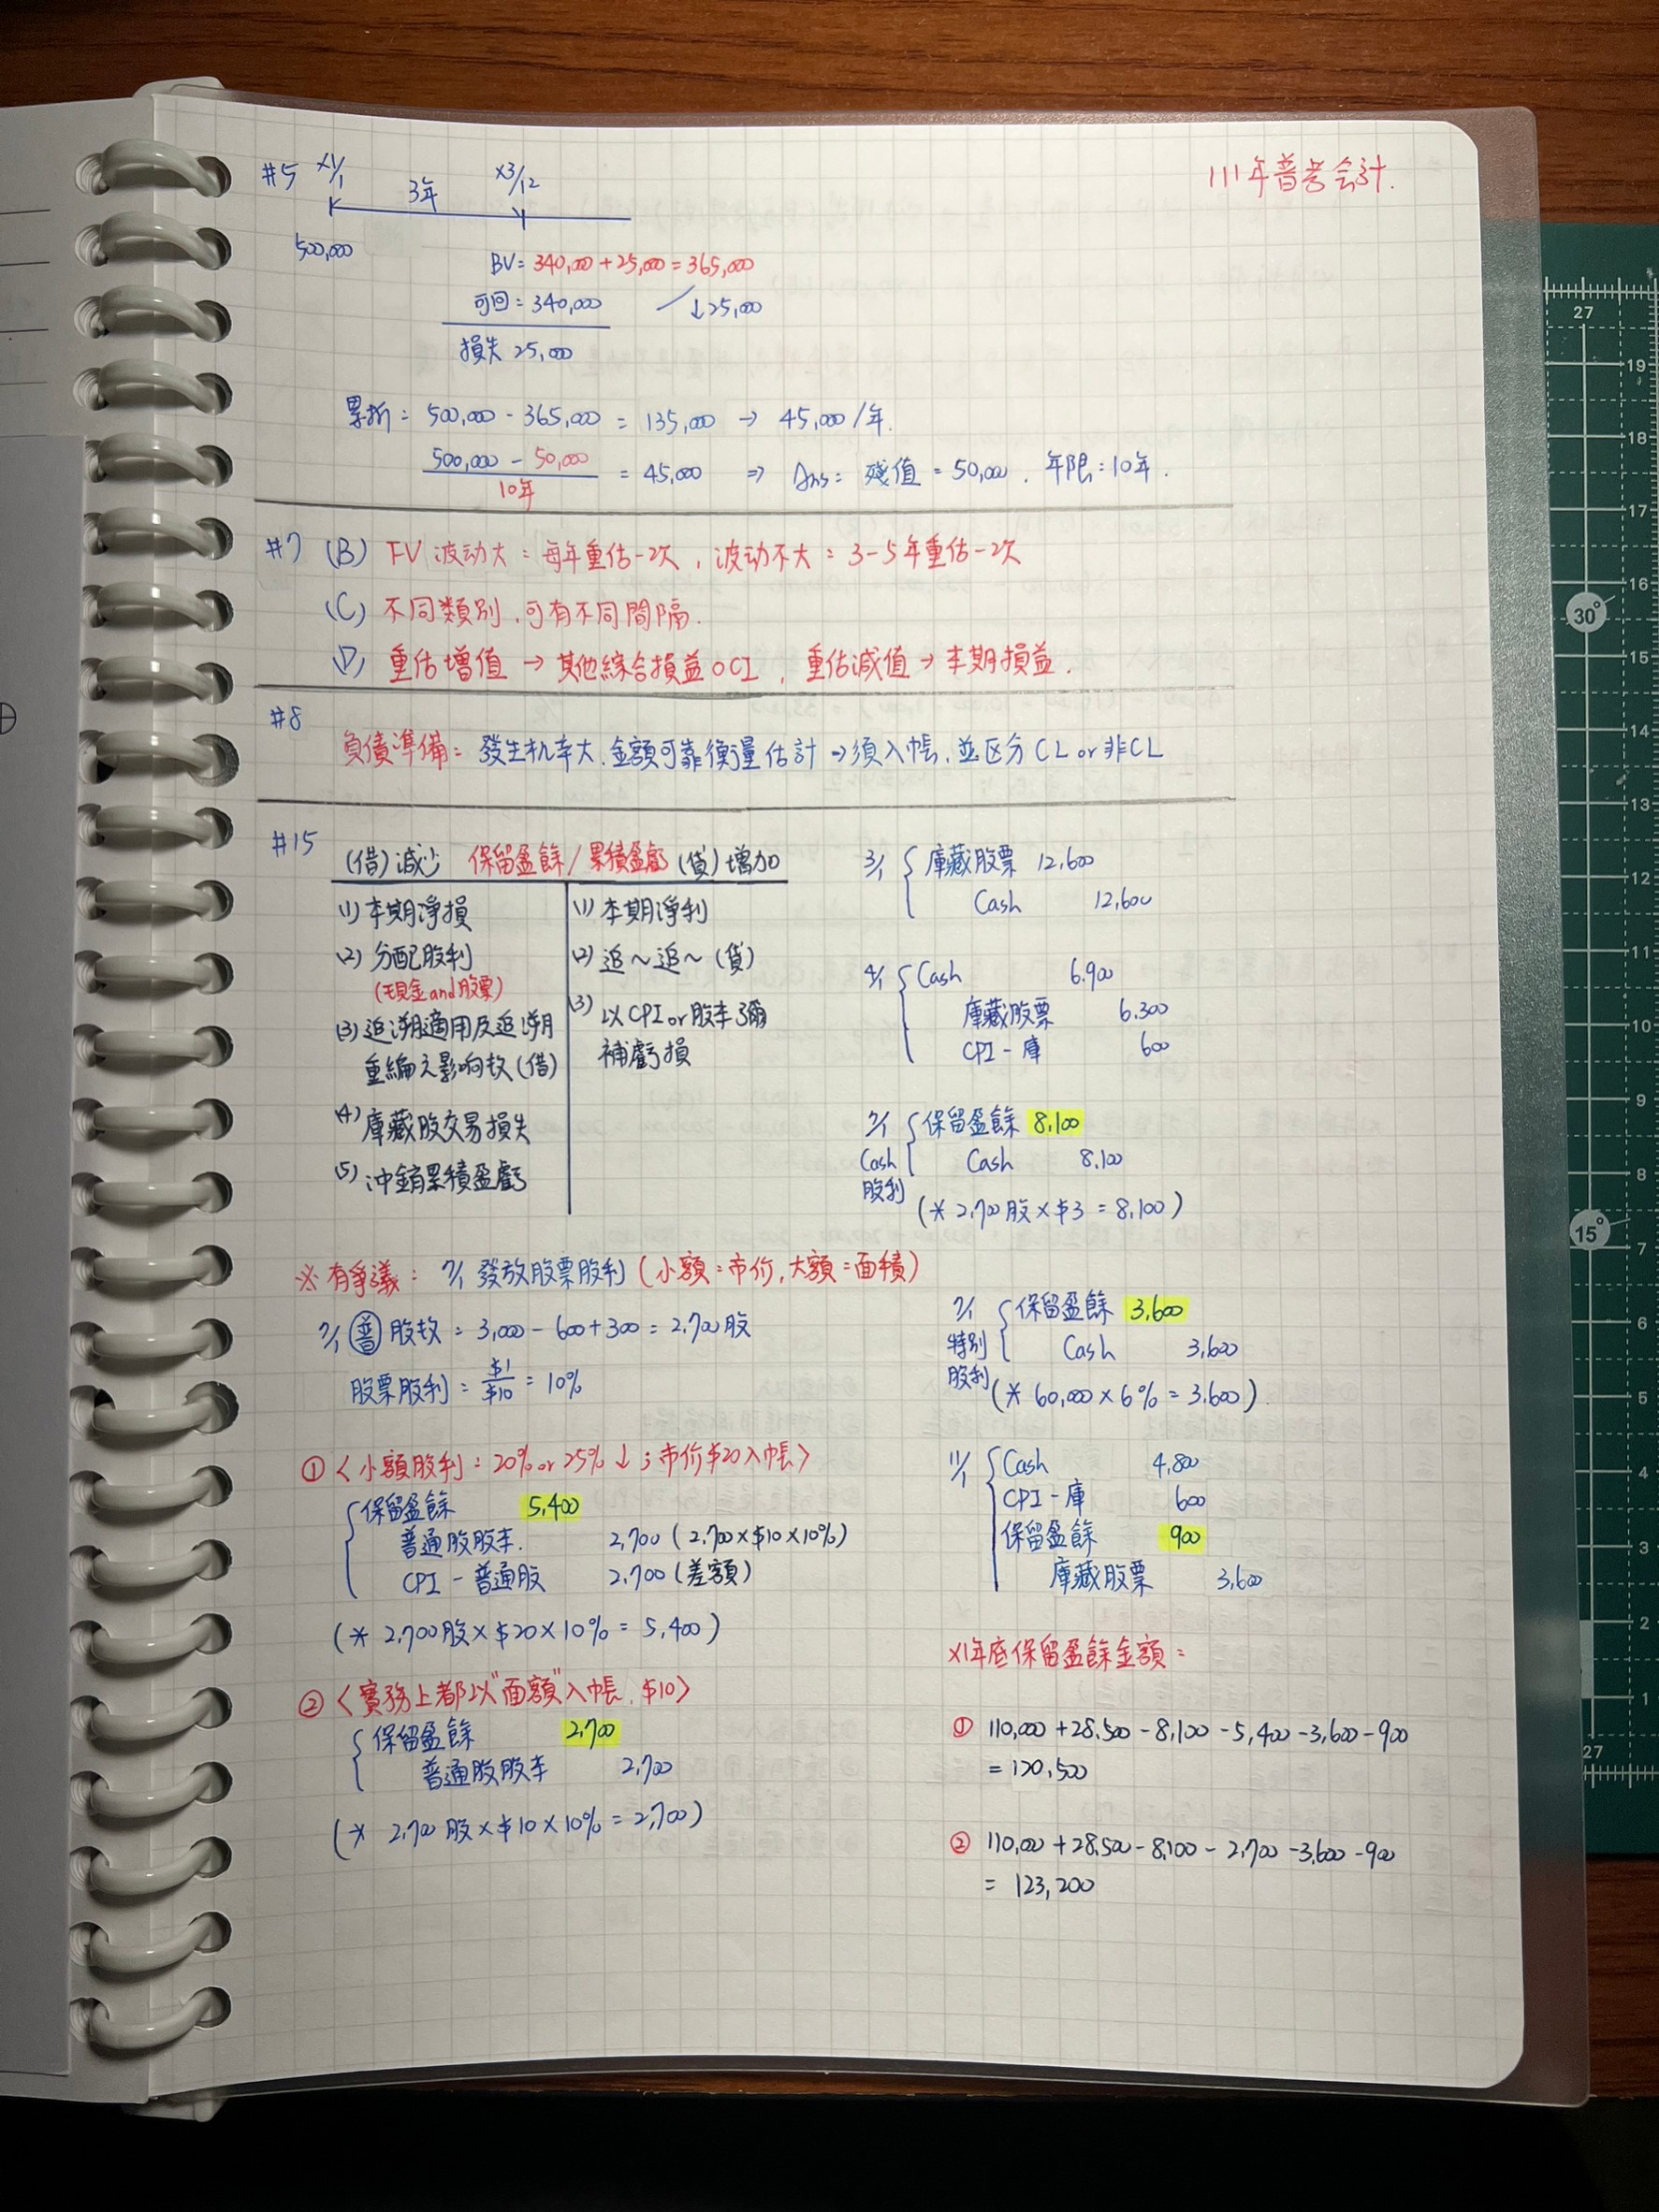 111年普考会計.
#5 X1/1 3年 X3/12
500,000
BV = 340,000 + 25,000 = 365,000
可回 = 340,000 ↓25,000
損失 25,000
累折 = 500,000 - 365,000 = 135,000 → 45,000/年.
500,000 - 50,000 / 10年 = 45,000 ⇒ Ans = 殘值 = 50,000 . 年限 = 10年 .
#7 (B) FV 波动大 = 每年重估一次 , 波动不大 = 3-5年重估一次
(C) 不同類別 , 可有不同間隔.
(D) 重估增值 → 其他綜合損益OCI , 重估減值 → 本期損益 .
#8
負債準備 = 發生机率大 . 金額可靠衡量估計 → 須入帳 , 並区分 CL or 非CL
#15
(借) 減少 保留盈餘 / 累積盈虧 (貸) 增加
(1) 本期淨損
(2) 分配股利
(現金and股票)
(3) 追溯適用及追溯
重編之影响数 (借)
(4) 庫藏股交易損失
(5) 沖銷累積盈虧
(1) 本期淨利
(2) 追~追~ (貸)
(3) 以CPI or 股本彌
補虧損
3/1 庫藏股票 12,600
Cash 12,600
4/1 Cash 6,900
庫藏股票 6,300
CPI - 庫 600
7/1 保留盈餘 8,100
Cash Cash 8,100
股利
(* 2,700股 × $3 = 8,100)
※ 有爭議 : 7/1 發放股票股利 (小額=市价, 大額=面積)
7/1 普 股数 = 3,000 - 600 + 300 = 2,700股
股票股利 = $1/$10 = 10%
7/1 保留盈餘 3,600
特別 Cash 3,600
股利
(* 60,000 × 6% = 3,600)
① <小額股利 : 20% or 25% ↓ ; 市价$20入帳>
保留盈餘 5,400
普通股股本. 2,700 (2,700×$10×10%)
CPI - 普通股 2,700 (差額)
(* 2,700股 × $20 × 10% = 5,400)
11/1 Cash 4,800
CPI - 庫 600
保留盈餘 900
庫藏股票 3,600
② <實務上都以"面額"入帳. $10>
保留盈餘 2,700
普通股股本 2,700
(* 2,700股 × $10 × 10% = 2,700)
X1年底保留盈餘金額 =
① 110,000 + 28,500 - 8,100 - 5,400 - 3,600 - 900
= 120,500
② 110,000 + 28,500 - 8,100 - 2,700 - 3,600 - 900
= 123,200
27
19
18
17
16
30°
15
14
13
12
11
10
9
8
15°
7
6
5
4
3
2
1
27